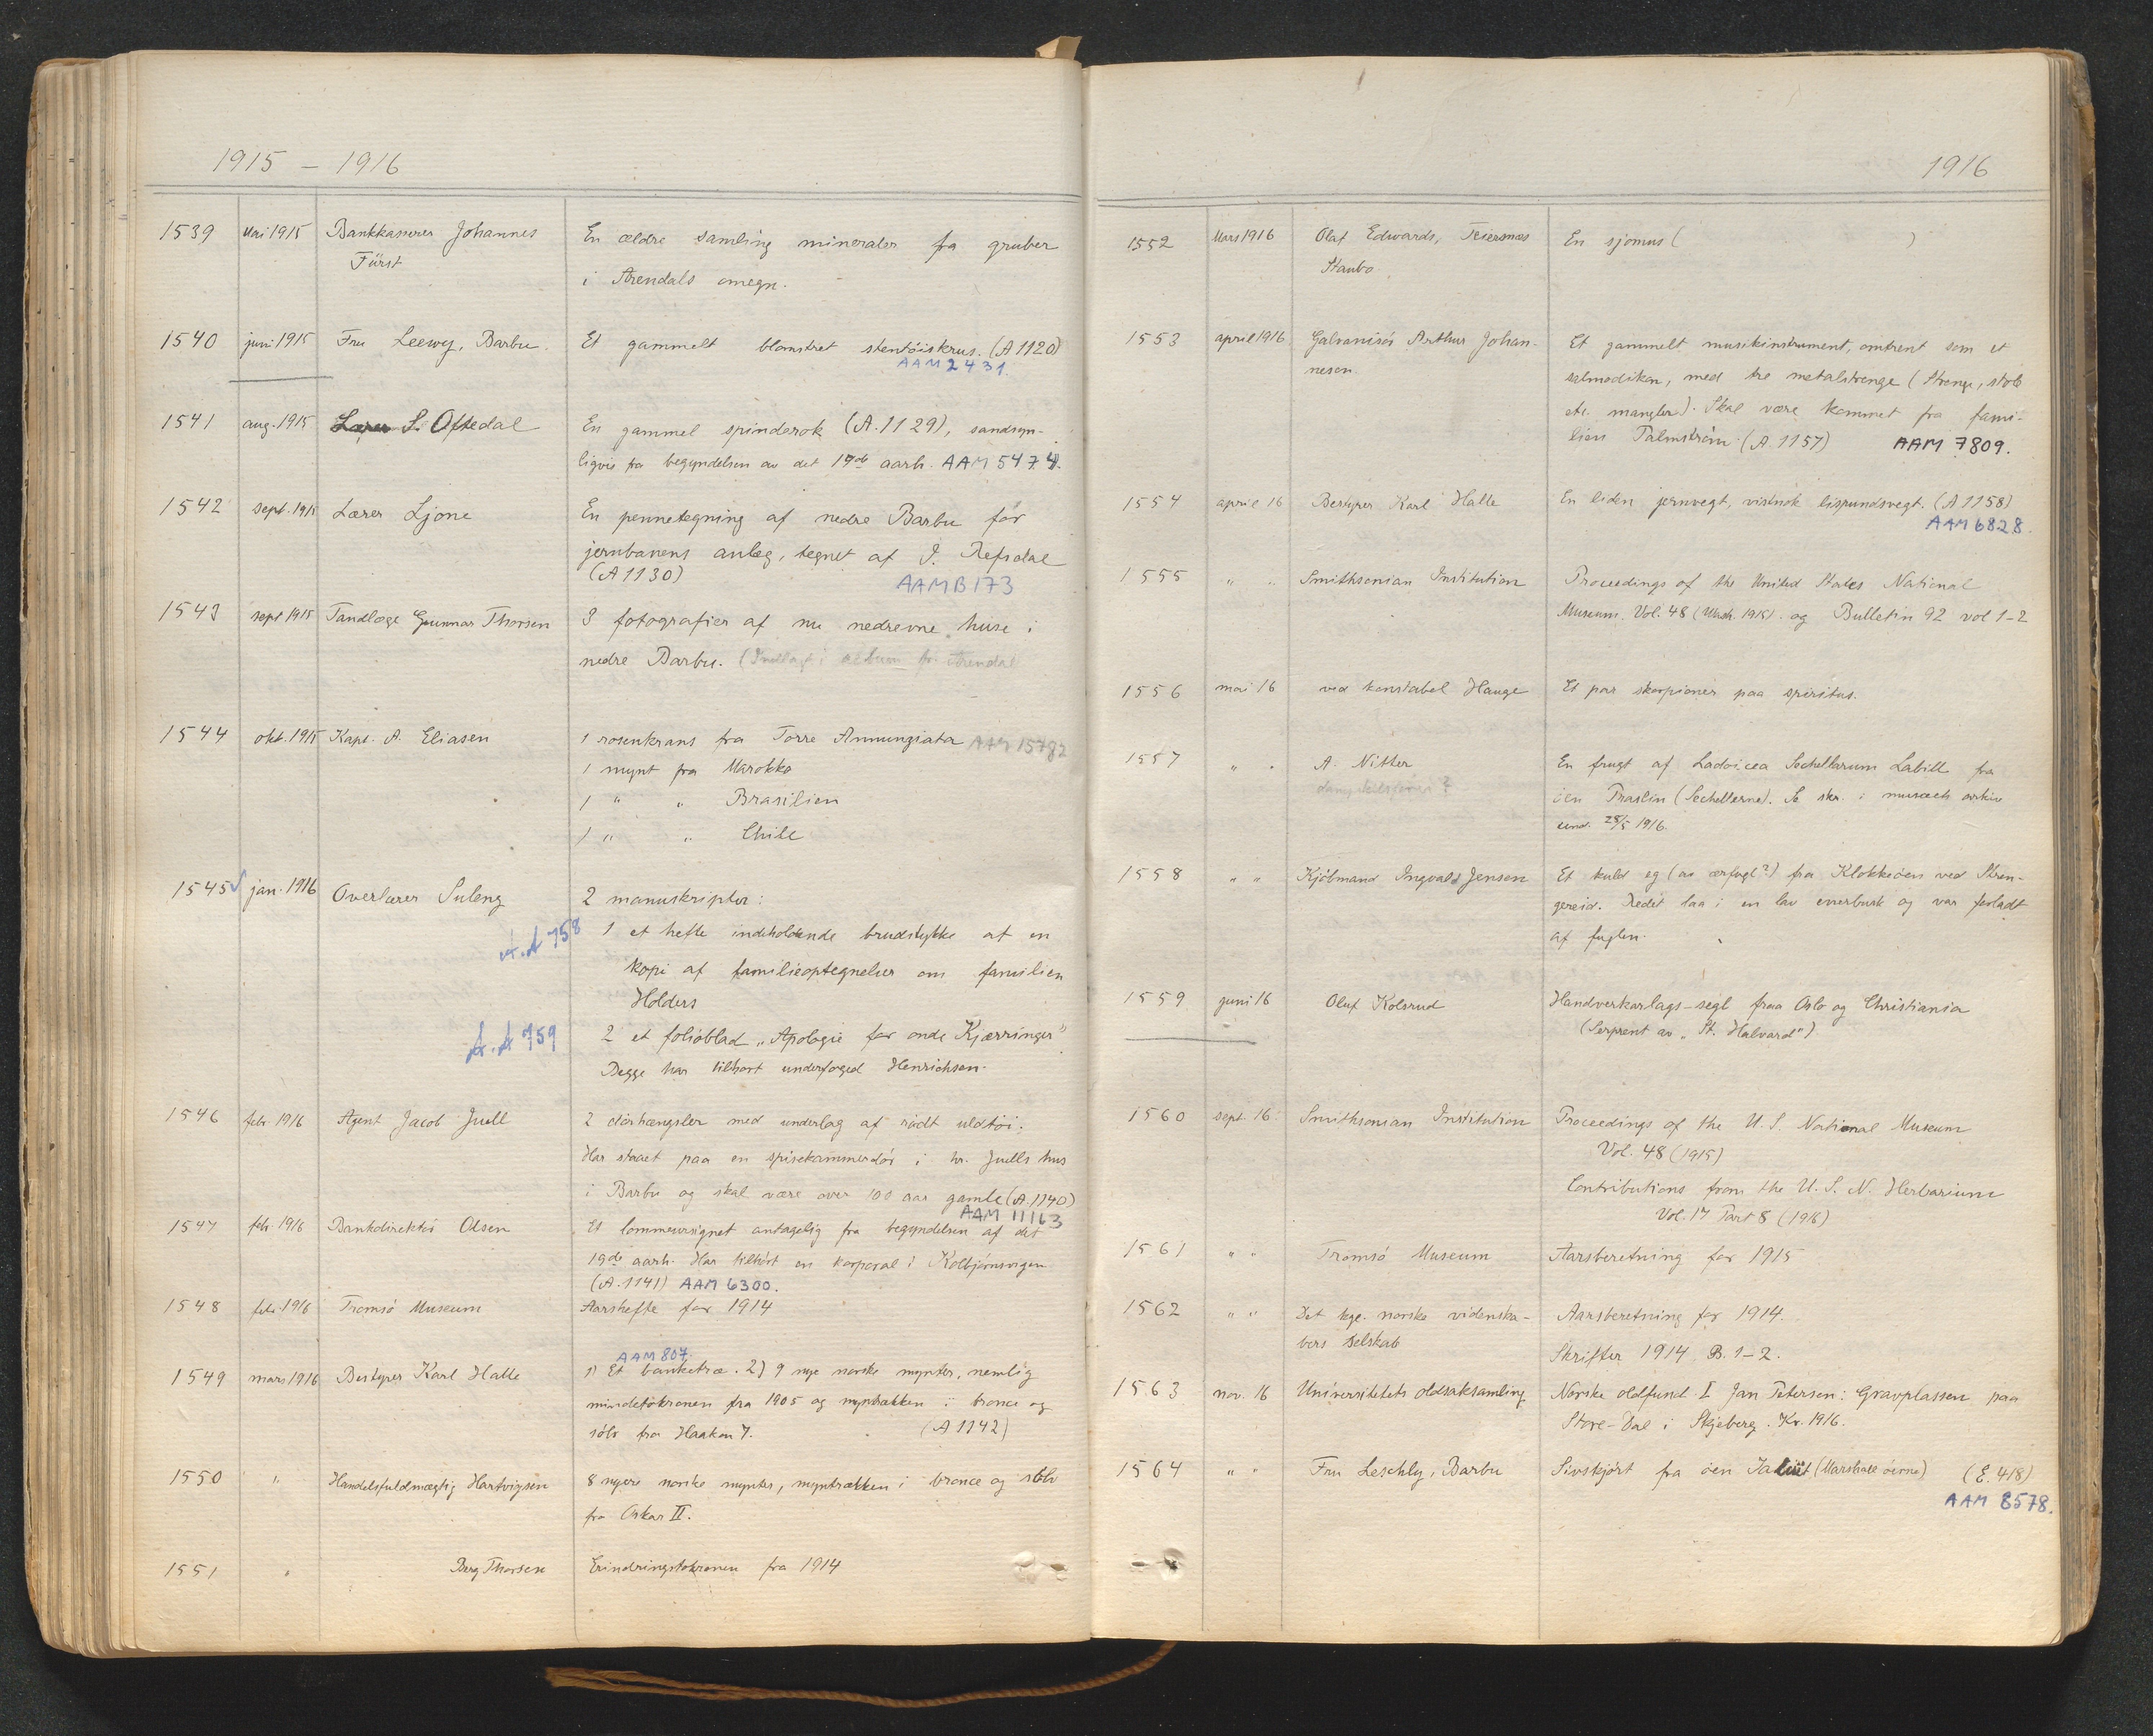 1915 – 1916
1539 Mai 1915 Bankkasserer Johannes Fürst
En ældre samling mineraler fra gruber
i Arendals omegn.
1540 juni 1915 Fru Leewy, Barbu.
Et gammelt blomstret stentöiskrus. (A 1120)
AAM 2431.
1541 aug. 1915 Lærer S. Oftedal
En gammel spinderok (A. 1129), sandsyn-
ligvis fra begyndelsen av det 19de aarh. AAM 5474.
1542 sept. 1915 Lærer Ljone
En pennetegning af nedre Barbu før
jernbanens anlæg, tegnet af J. Refsdal
(A 1130)
AAMB 173
1543 sept 1915 Tandlæge Gunnar Thorsen
3 fotografier af nu nedrevne huse i
nedre Barbu. (Indlagt i album fr. Arendal
1544 okt. 1915 Kapt. A. Eliasen
1 rosenkrans fra Torre Annunziata AAM 15782
1 mynt fra Marokko
1 " " Brasilien
1 " " Chile
1545 jan. 1916 Overlærer Suleng
2 manuskripter:
A.A 758
1 et hefte indeholdende brudstykke af en
kopi af familieoptegnelser om familien
Holders
A.A 759
2 et folioblad „Apologie for onde Kjærringer"
Begge har tilhørt underfoged Henrichsen.
1546 febr. 1916 Agent Jacob Juell
2 dörhængsler med underlag af rödt uldtöi.
Har staaet paa en spisekammerdör i hr. Juells hus
i Barbu og skal være over 100 aar gamle (A. 1140)
AAM 11163
1547 febr. 1916 Bankdirektör Olsen
Et lommeursignet antagelig fra begyndelsen af det
19de aarh. Har tilhört en korporal i Kolbjörnsvigen
(A. 1141) AAM 6300.
1548 febr. 1916 Tromsö Museum
Aarshefte for 1914
AAM 807.
1549 mars 1916 Bestyrer Karl Halle
1) Et banketræ. 2) 9 nye norske mynter, nemlig
mindetokronen fra 1905 og myntrækken i bronce og
sölv fra Haakon 7. (A 1142)
1550 " Handelsfuldmægtig Hartvigsen
8 nyere norske mynter, myntrækken i bronce og sölv
fra Oskar II.
1551 " Berg Thorsen
Erindringstokronen fra 1914
1916
1552 Mars 1916 Olaf Edwards,
Stanbo.
En sjömus ( )
1553 april 1916 Galvanisör Arthur Johan-
nesen.
Et gammelt musikinstrument, omtrent som et
salmodikon, med tre metalstrenge (Strenge, stol
etc. mangler). Skal være kommet fra fami-
lien Palmström. (A 1157) AAM 7809.
1554 april 16 Bestyrer Karl Halle
En liden jernvegt, vistnok lispundsvegt. (A 1158)
AAM 6828.
1555 " " Smithsonian Institution
Proceedings of the United States National
Museum. Vol. 48 (Wash. 1915). og Bulletin 92 vol 1-2
1556 mai 16 ved konstabel Hauge
Et par skorpioner paa spiritus.
1557 " " A. Nitter
En frugt af Ladoicea Sechellarum Labill fra
öen Praslin (Sechellerne). Se skr. i museets arkiv
und. 28/5 1916.
1558 " " Kjöbmand Ingvald Jensen
Et kuld eg (av ærfugl?) fra Klokkeöen ved Stren-
gereid. Redet laa i en lav enerbusk og var forladt
af fuglen.
1559 juni 16 Oluf Kolsrud
Handverkarlags-segl fraa Oslo og Christiania
(Serprent av „St. Halvard").
1560 sept. 16. Smithsonian Institution
Proceedings of the U.S. National Museum
Vol. 48 (1915)
Contributions from the U.S.N. Herbarium
Vol. 17 Part 8 (1916)
1561 " " Tromsö Museum
Aarsberetning for 1915
1562 " " Det kgl. norske videnska-
bers selskab
Aarsberetning for 1914.
Skrifter 1914. B. 1-2.
1563 nov. 16 Universitetets oldsaksamling
Norske oldfund I Jan Petersen: Gravplassen paa
Store-Dal i Skjeberg. Kr. 1916.
1564 " " Fru Leschly, Barbu
Sivskjört fra öen Jaluit (Marshall öerne) (E. 418)
AAM 8578.